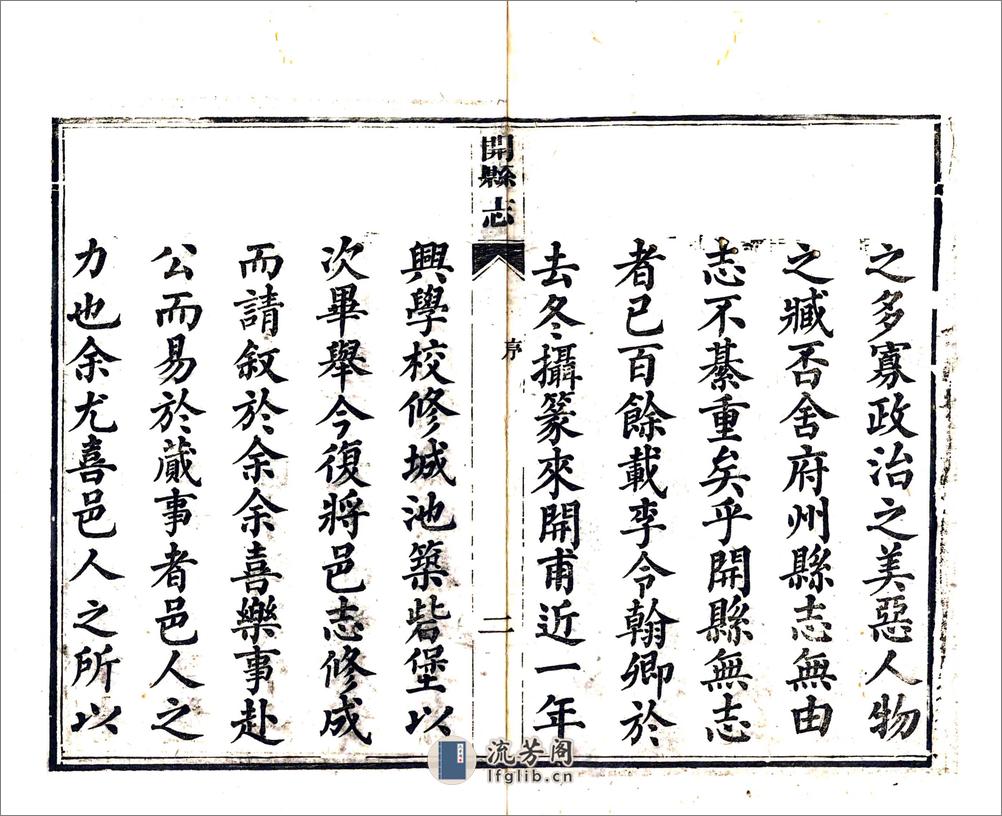 之多寡政治之美惡人物
之臧否舍府州縣志無由
志不綦重矣乎開縣無志
者已百餘載李令翰卿於
去冬攝篆來開甫近一年
開縣志
序
二
興學校修城池築砦堡以
次畢舉今復將邑志修成
而請叙於余余喜樂事赴
公而易於蕆事者邑人之
力也余尤喜邑人之所以
流芳阁
lfglib.cn